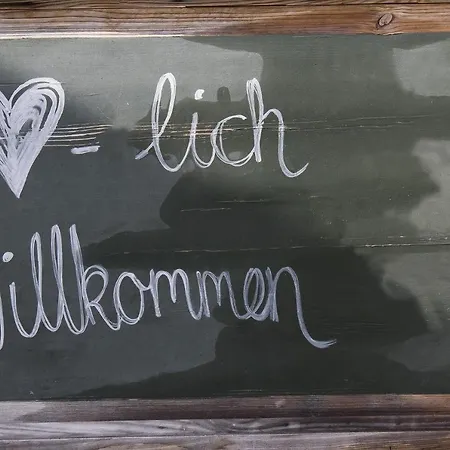 ♥-lich
willkommen